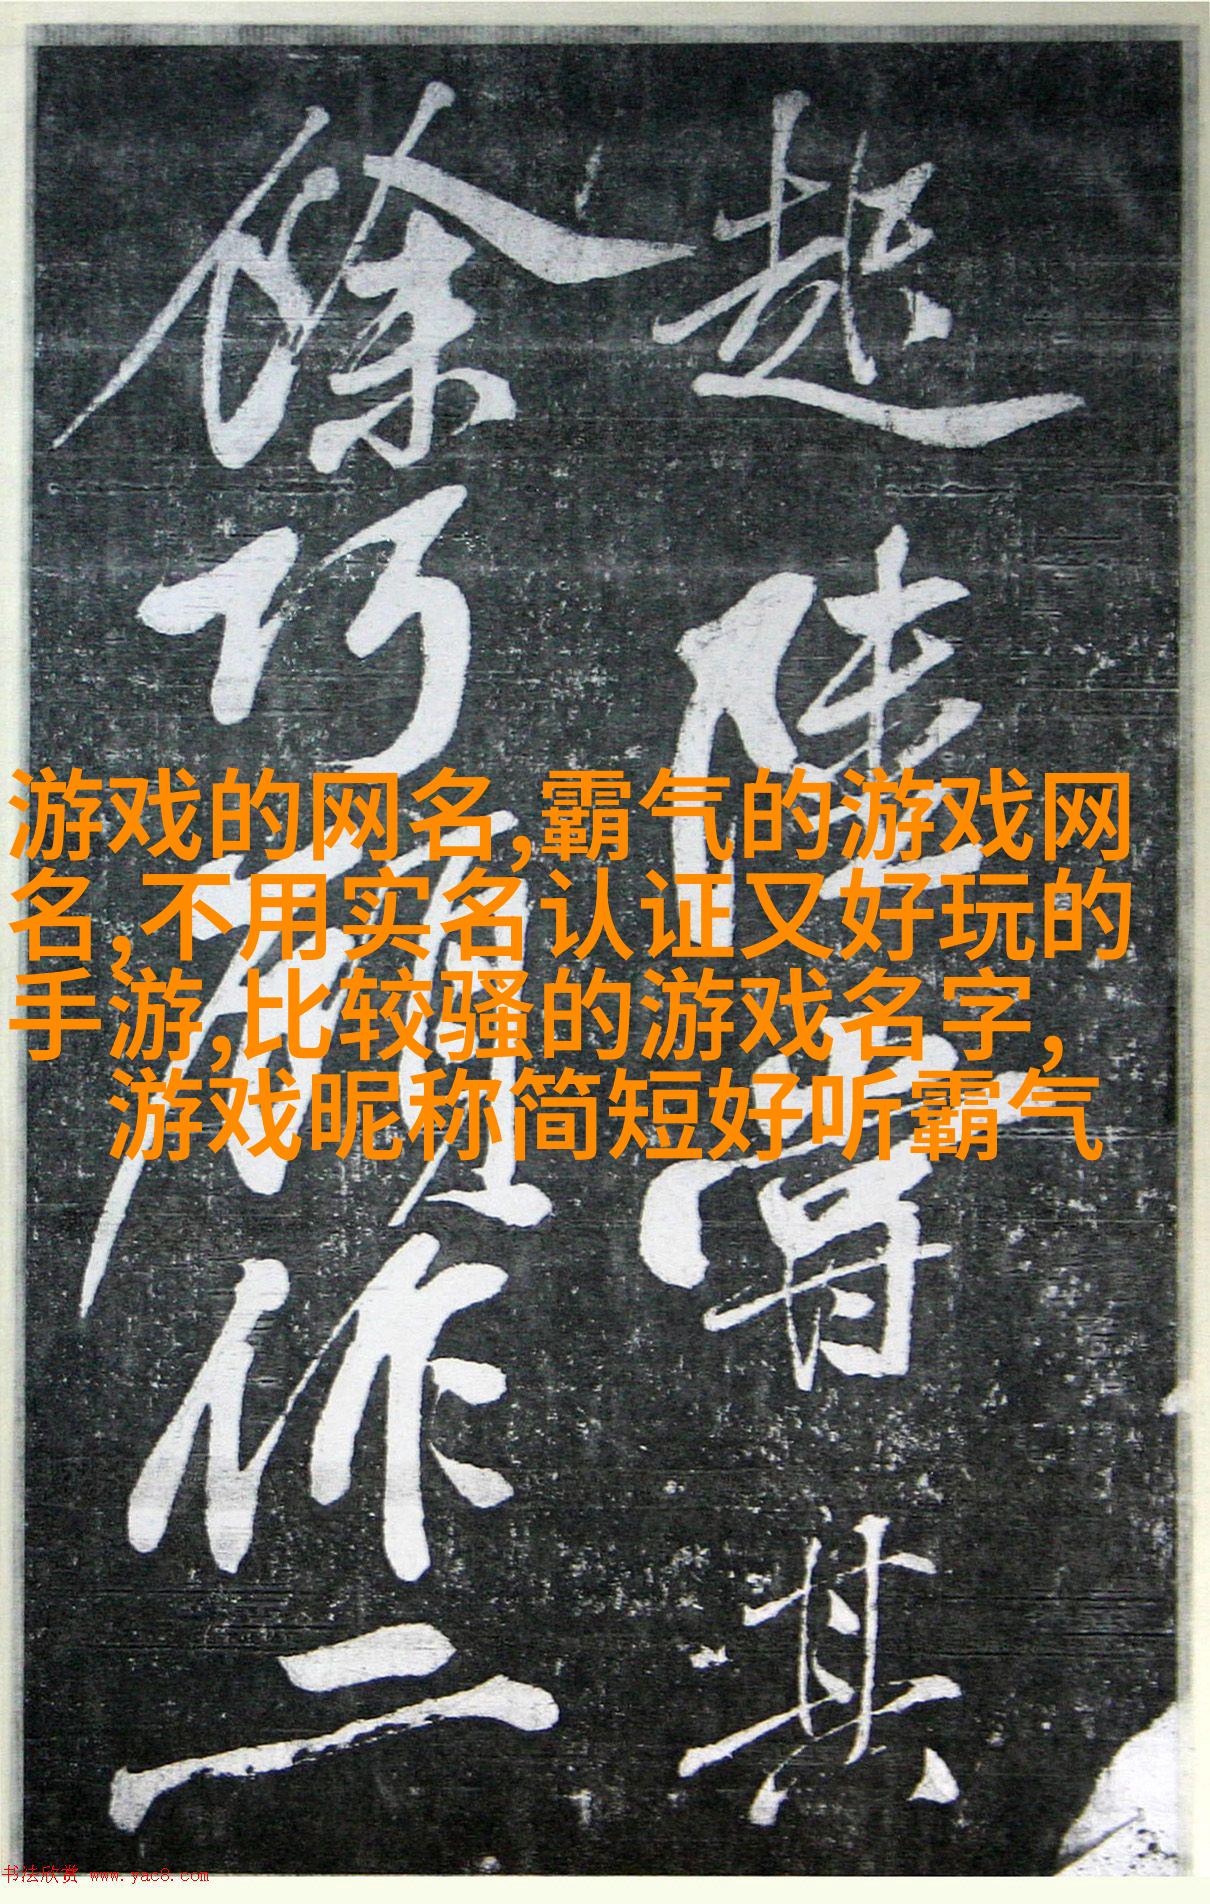 陸其
巧作二
游戏的网名,霸气的游戏网
名,不用实名认证又好玩的
手游,比较骚的游戏名字,
游戏昵称简短好听霸气
书法欣赏 www.yac8.com